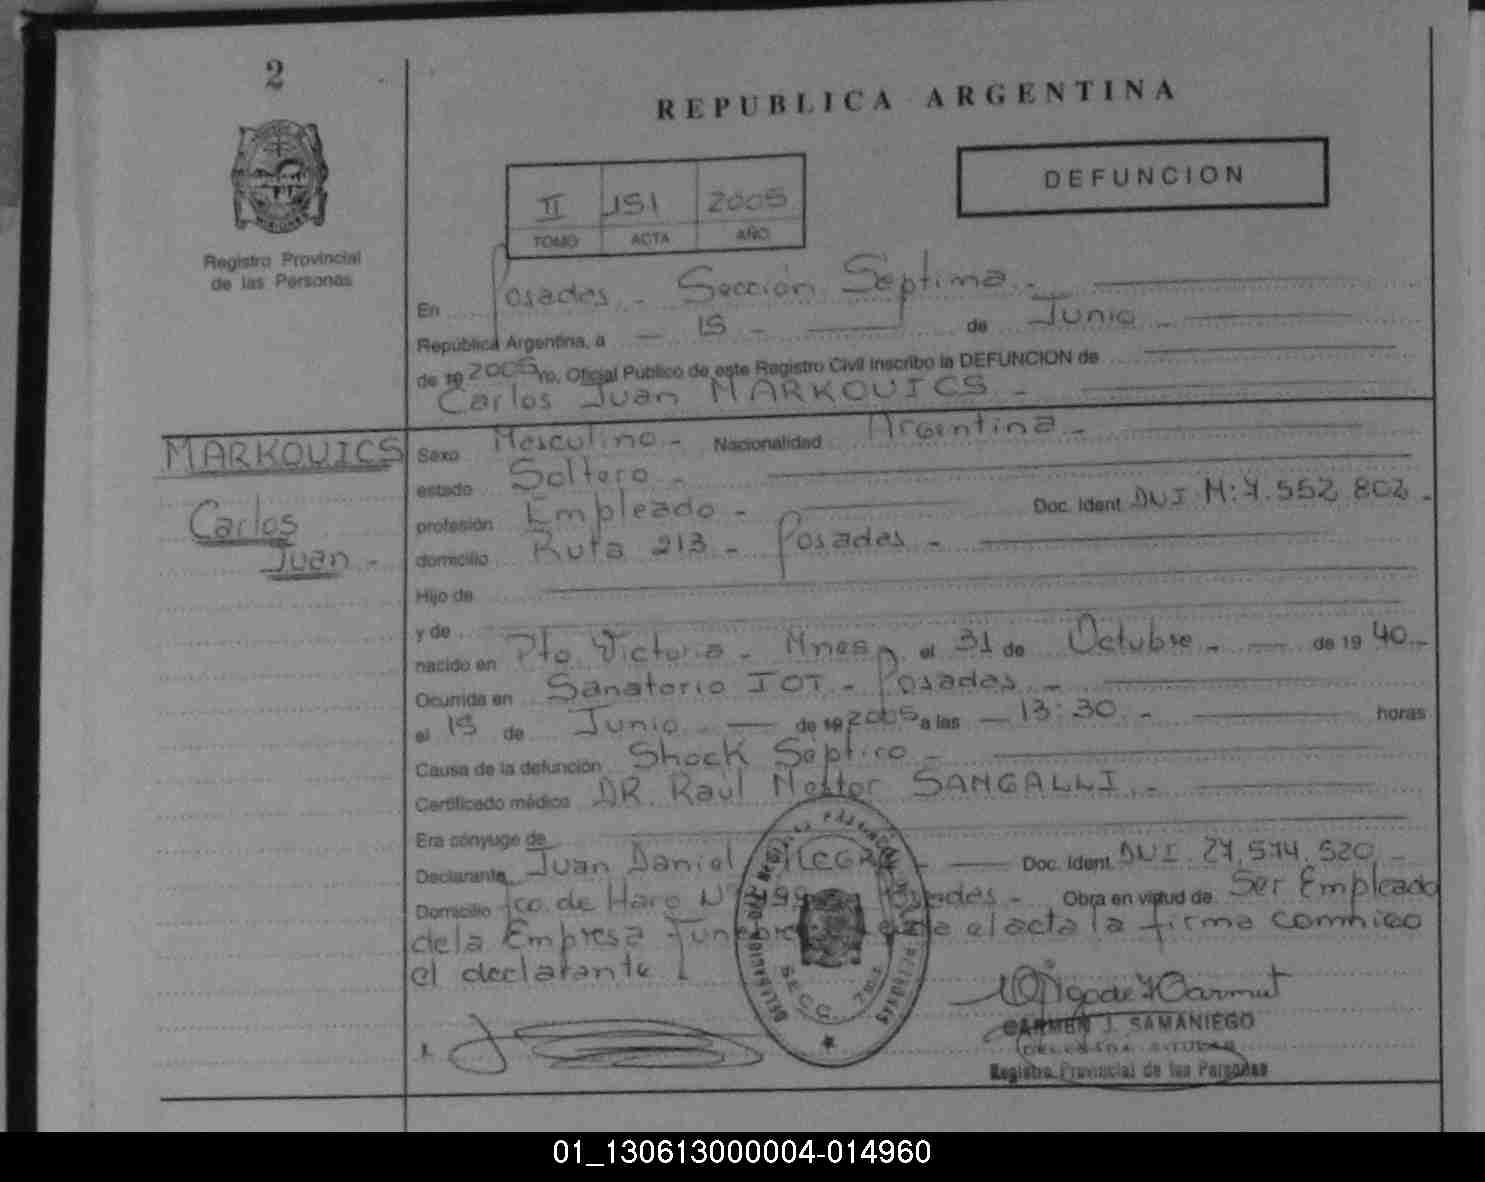 2
REPUBLICA ARGENTINA
DEFUNCION
II 151 2005
TOMO ACTA AÑO
Registro Provincial
de las Personas
En Posadas - Sección Séptima -
República Argentina, a - 15 - de Junio -
de 19 2005 yo, Oficial Público de este Registro Civil inscribo la DEFUNCION de
Carlos Juan MARKOVICS -
MARKOVICS
Carlos
Juan -
Sexo Masculino - Nacionalidad Argentina -
estado Soltero -
profesión Empleado - Doc. Ident. DNI M: 7.552.802 -
domicilio Ruta 213 - Posadas -
Hijo de
y de
nacido en Pto Victoria - Mnes, el 31 de Octubre - de 19 40 -
Ocurrida en Sanatorio IOT - Posadas -
el 15 de Junio - de 19 2005 a las - 13:30 - horas
Causa de la defunción Shock Septico -
Certificado médico DR. Raúl Nestor SANGALLI -
Era cónyuge de
Declarante Juan Daniel - Doc. Ident. DNI. 27.574.520 -
Domicilio Fco. de Haro Nº Posadas - Obra en virtud de Ser Empleado
de la Empresa el acta la firma conmigo
el declarante
SECC. 7ma
CARMEN J. SAMANIEGO
DELEGADA TITULAR
Registro Provincial de las Personas
01_130613000004-014960